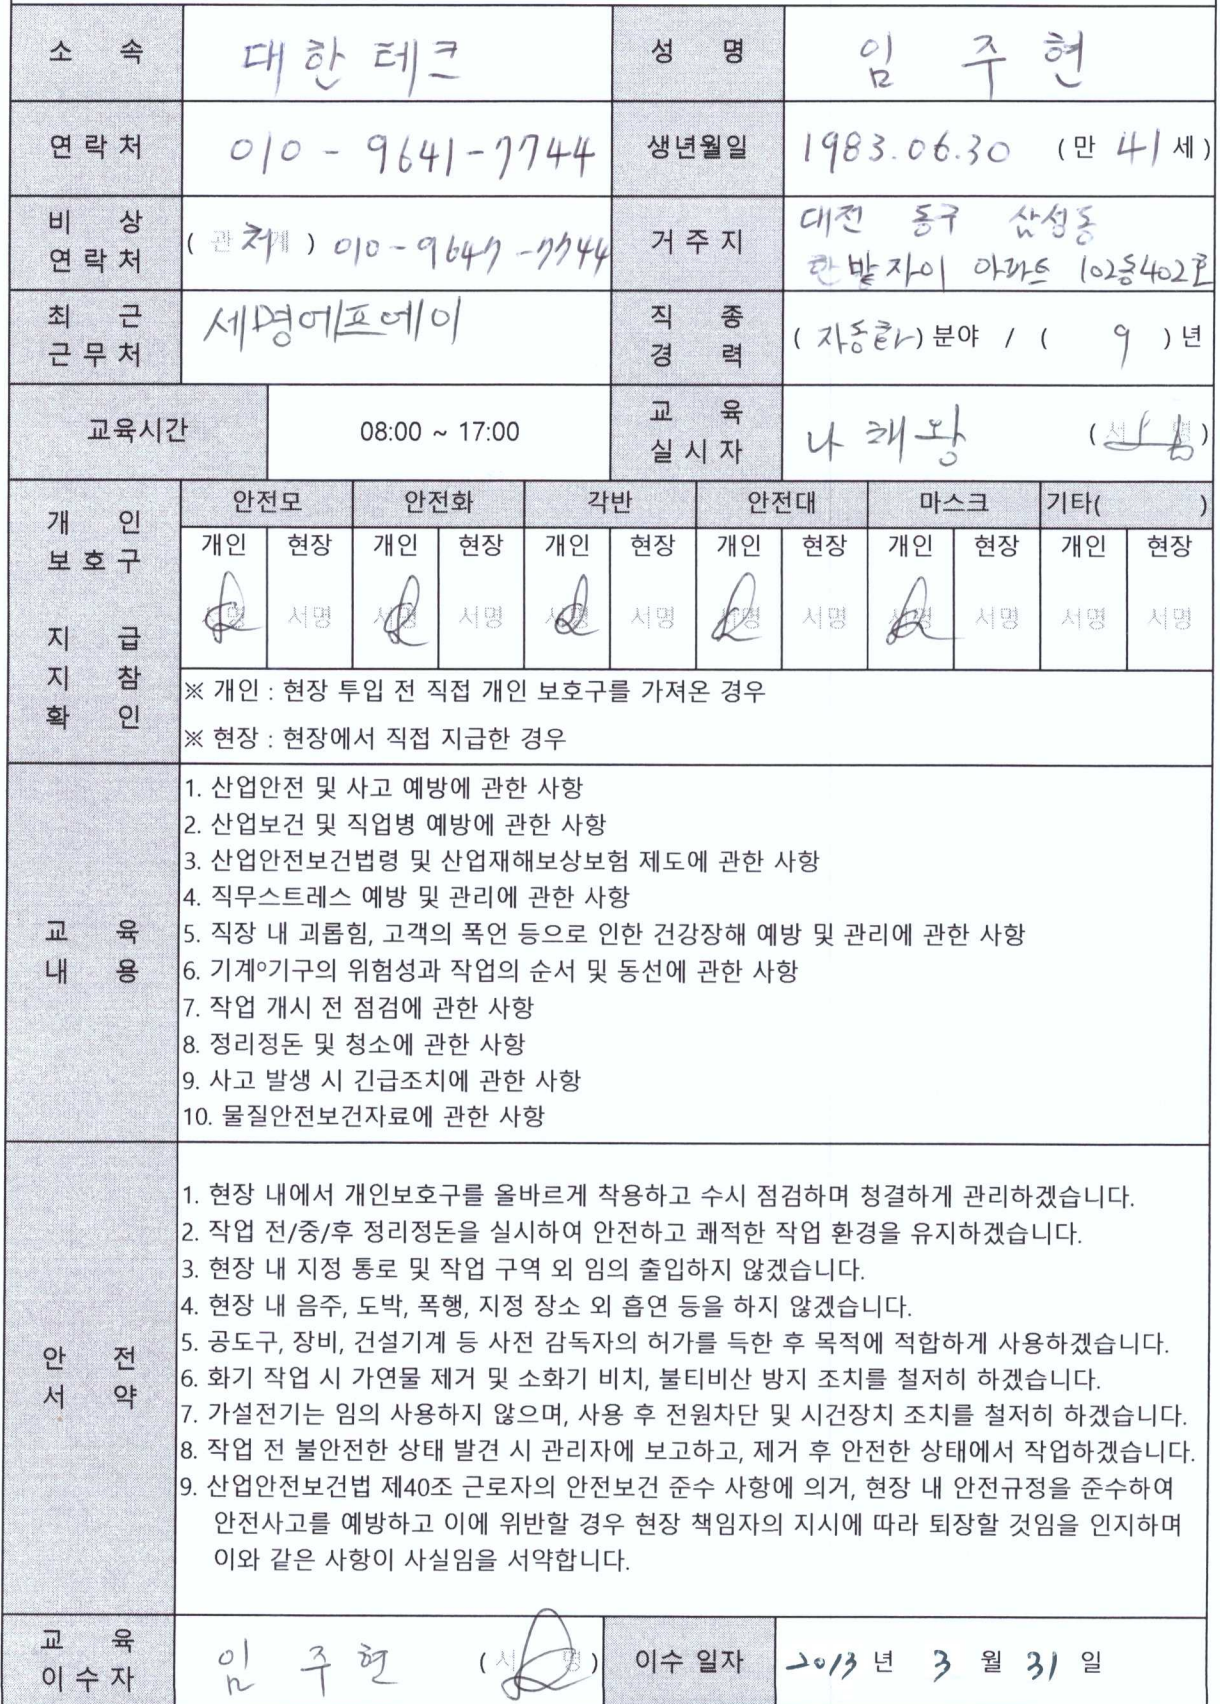 소 속 대한테크 성 명 임 주 현
연 락 처 010 - 9641-7744 생년월일 1983.06.30 (만 41 세)
비 상
연 락 처 (관 계) 처 010-9647-7744 거 주 지 대전 동구 삼성동
한밭자이 아파트 102동402호
최 근
근 무 처 세명에프에이 직 종
경 력 (자동화)분야 / ( 9 )년
교육시간 08:00 ~ 17:00 교 육
실 시 자 나 해왕 (서 명)
개 인
보 호 구
지 급
지 참
확 인
안전모 안전화 각반 안전대 마스크 기타( )
개인 현장 개인 현장 개인 현장 개인 현장 개인 현장 개인 현장
서명 서명 서명 서명 서명 서명 서명 서명 서명 서명 서명 서명
※ 개인 : 현장 투입 전 직접 개인 보호구를 가져온 경우
※ 현장 : 현장에서 직접 지급한 경우
교 육
내 용
1. 산업안전 및 사고 예방에 관한 사항
2. 산업보건 및 직업병 예방에 관한 사항
3. 산업안전보건법령 및 산업재해보상보험 제도에 관한 사항
4. 직무스트레스 예방 및 관리에 관한 사항
5. 직장 내 괴롭힘, 고객의 폭언 등으로 인한 건강장해 예방 및 관리에 관한 사항
6. 기계°기구의 위험성과 작업의 순서 및 동선에 관한 사항
7. 작업 개시 전 점검에 관한 사항
8. 정리정돈 및 청소에 관한 사항
9. 사고 발생 시 긴급조치에 관한 사항
10. 물질안전보건자료에 관한 사항
안 전
서 약
1. 현장 내에서 개인보호구를 올바르게 착용하고 수시 점검하며 청결하게 관리하겠습니다.
2. 작업 전/중/후 정리정돈을 실시하여 안전하고 쾌적한 작업 환경을 유지하겠습니다.
3. 현장 내 지정 통로 및 작업 구역 외 임의 출입하지 않겠습니다.
4. 현장 내 음주, 도박, 폭행, 지정 장소 외 흡연 등을 하지 않겠습니다.
5. 공도구, 장비, 건설기계 등 사전 감독자의 허가를 득한 후 목적에 적합하게 사용하겠습니다.
6. 화기 작업 시 가연물 제거 및 소화기 비치, 불티비산 방지 조치를 철저히 하겠습니다.
7. 가설전기는 임의 사용하지 않으며, 사용 후 전원차단 및 시건장치 조치를 철저히 하겠습니다.
8. 작업 전 불안전한 상태 발견 시 관리자에 보고하고, 제거 후 안전한 상태에서 작업하겠습니다.
9. 산업안전보건법 제40조 근로자의 안전보건 준수 사항에 의거, 현장 내 안전규정을 준수하여
안전사고를 예방하고 이에 위반할 경우 현장 책임자의 지시에 따라 퇴장할 것임을 인지하며
이와 같은 사항이 사실임을 서약합니다.
교 육
이 수 자 임 주 현 (서 명) 이수 일자 2013 년 3 월 31 일